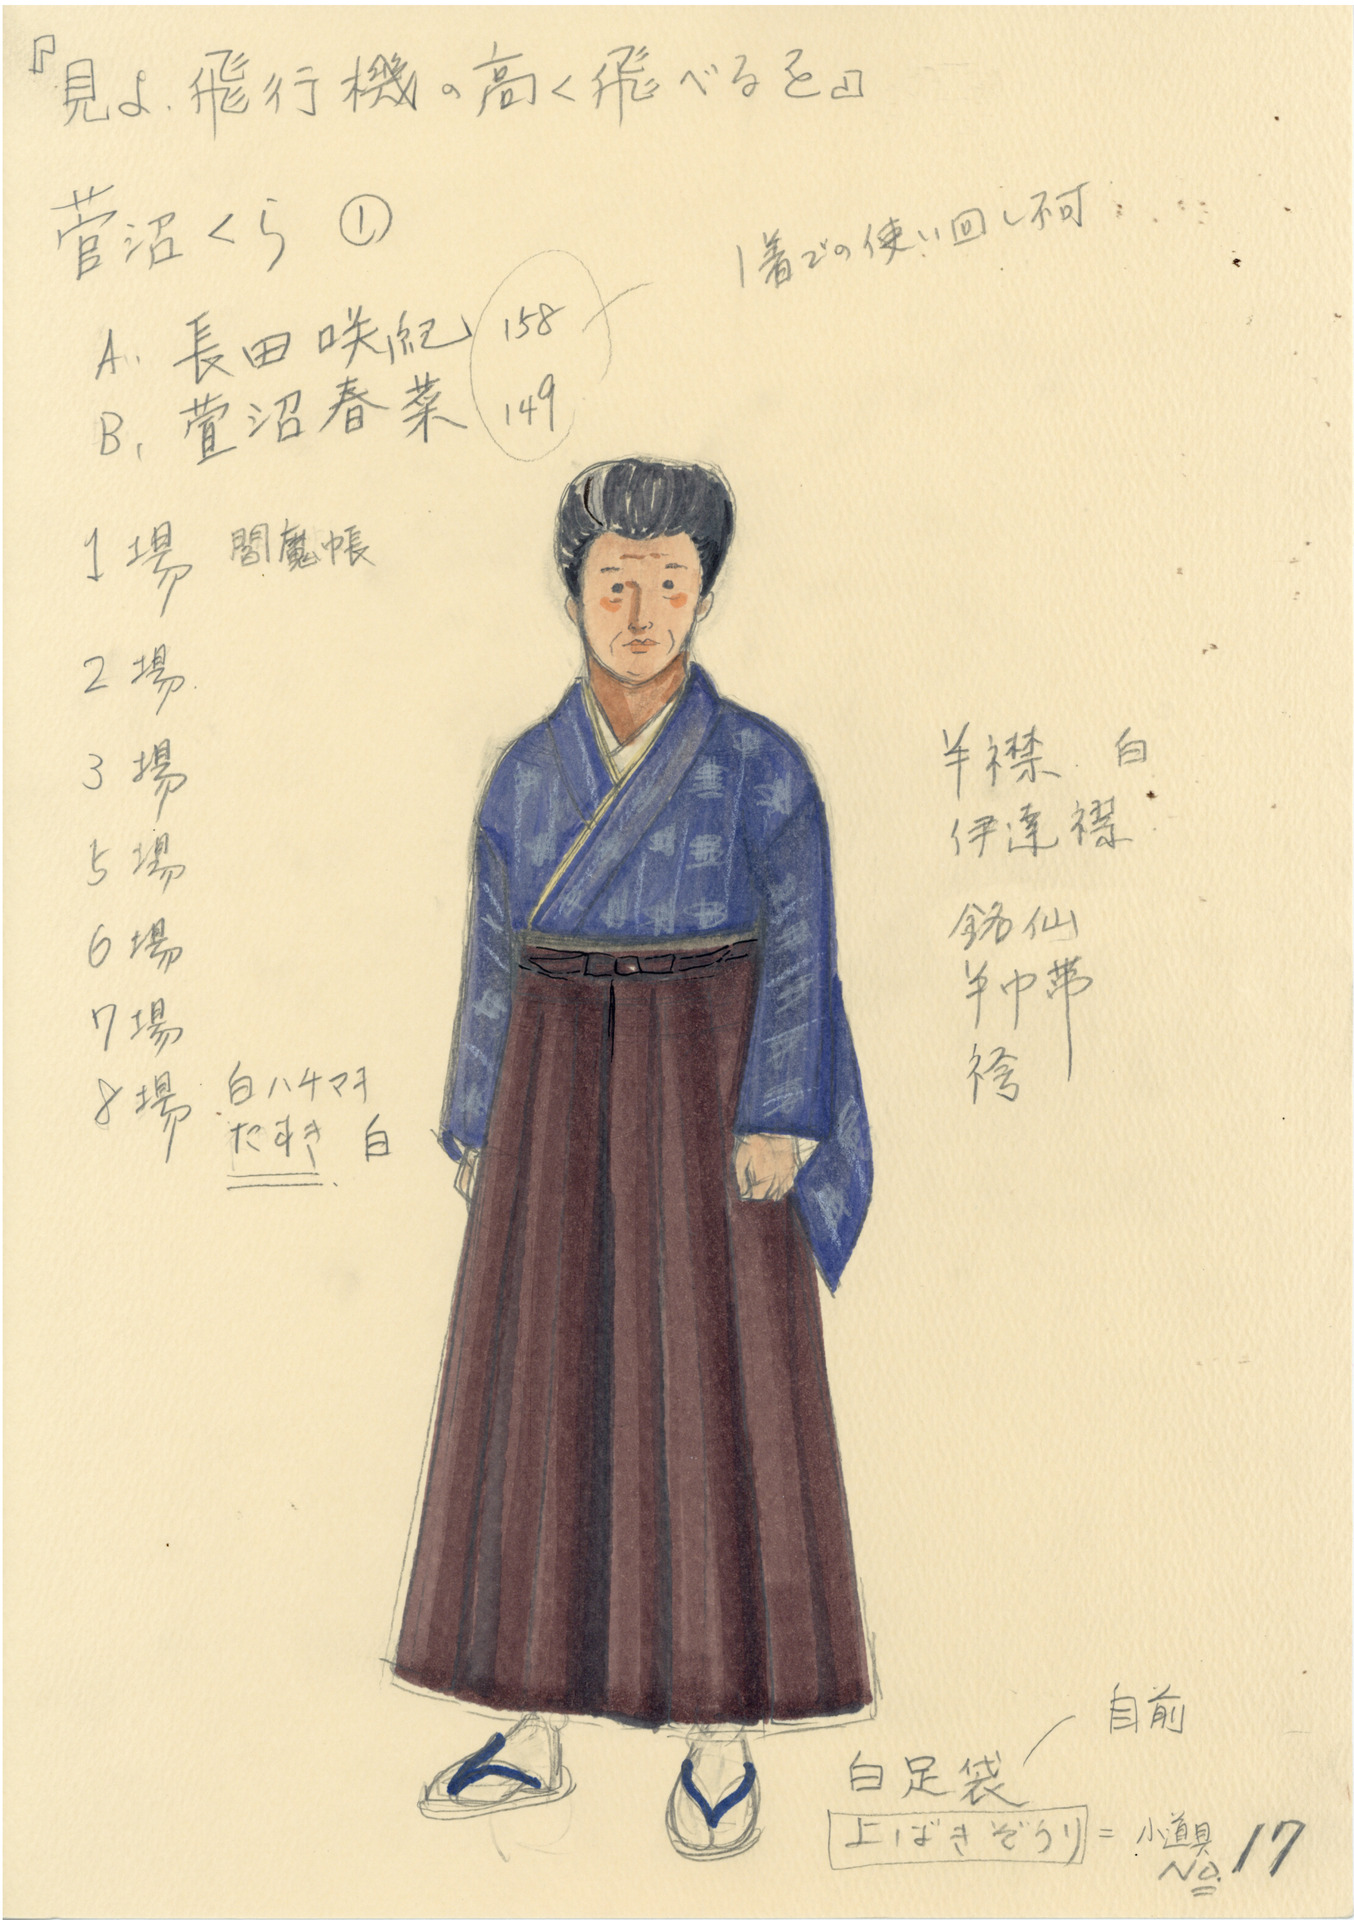 『見よ、飛行機の高く飛べるを』
菅沼くら ①
1着での使い回し不可
A. 長田咲紀 158
B. 萱沼春菜 149
1場 閻魔帳
2場
3場
5場
6場
7場
8場 白ハチマキ
たすき 白
半襟 白
伊達襟
銘仙
半巾帯
袴
自前
白足袋
上ばきぞうり = 小道具
No. 17